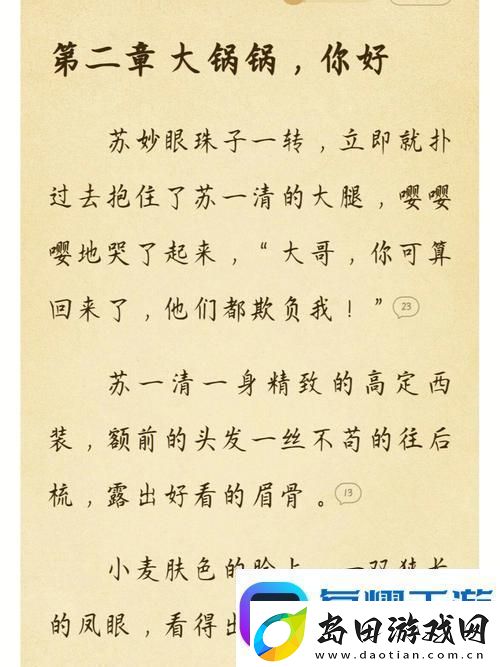 第二章 大锅锅，你好
苏妙眼珠子一转，立即就扑
过去抱住了苏一清的大腿，嘤嘤
嘤地哭了起来，“大哥，你可算
回来了，他们都欺负我！” 23
苏一清一身精致的高定西
装，额前的头发一丝不苟的往后
梳，露出好看的眉骨。 13
小麦肤色的脸上，一双狭长
的凤眼，看得出
岛田游戏网
www.daotian.com.cn